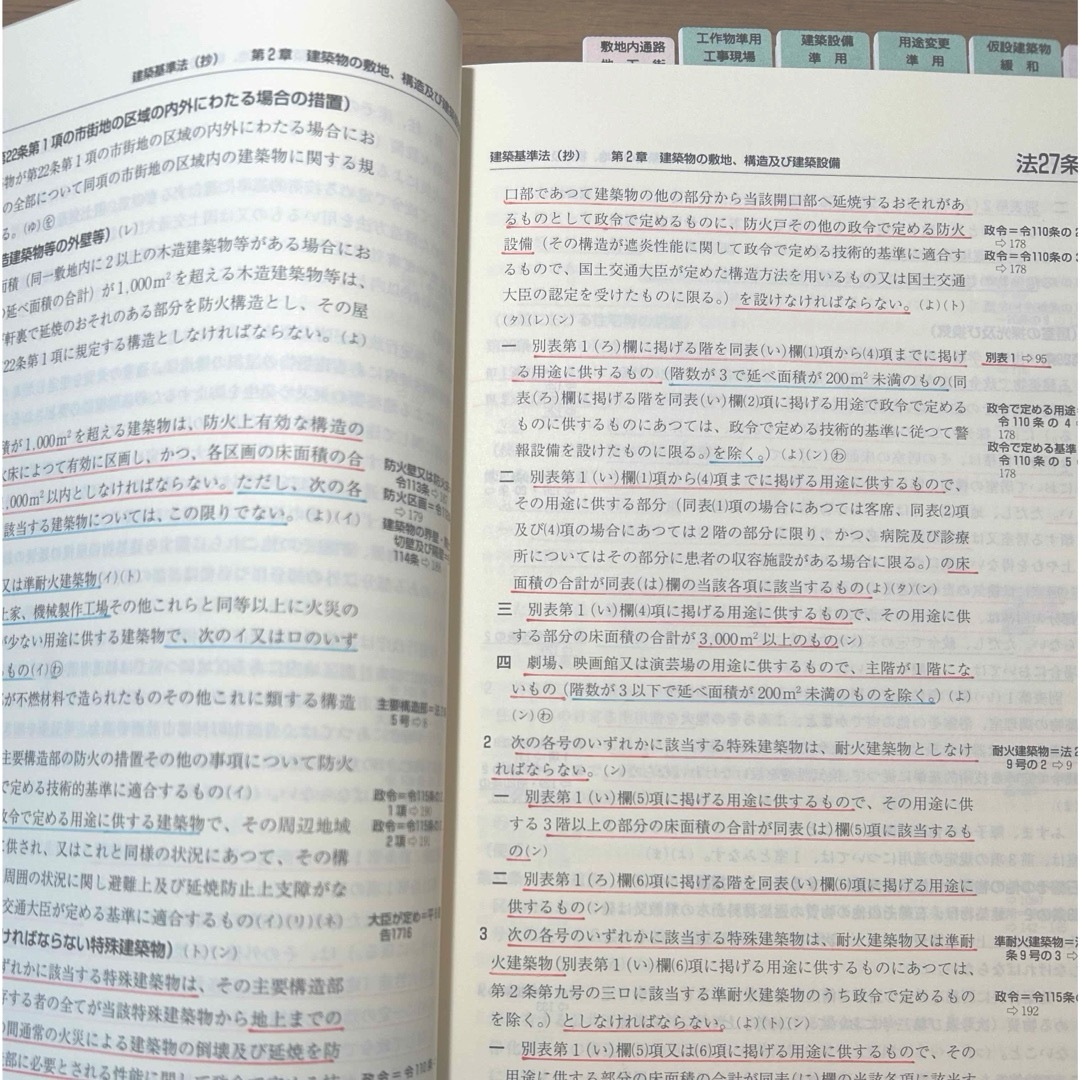 建築基準法（抄）　第２章　建築物の敷地、構造及び建築
第22条第１項の市街地の区域の内外にわたる場合の措置）
物が第22条第１項の市街地の区域の内外にわたる場合にお
の全部について同項の市街地の区域内の建築物に関する規
る。(ゆ)
造建築物等の外壁等）(レ)
面積（同一敷地内に２以上の木造建築物等がある場合にお
の延べ面積の合計）が1,000㎡を超える木造建築物等は、
軒裏で延焼のおそれのある部分を防火構造とし、その屋
22条第１項に規定する構造としなければならない。(よ)
積が1,000㎡を超える建築物は、防火上有効な構造の
火床によつて有効に区画し、かつ、各区画の床面積の合
,000㎡以内としなければならない。ただし、次の各
該当する建築物については、この限りでない。(よ)(イ)
又は準耐火建築物(イ)(ト)
上家、機械製作工場その他これらと同等以上に火災の
が少ない用途に供する建築物で、次のイ又はロのいず
もの(イ)
が不燃材料で造られたものその他これに類する構造
主要構造部の防火の措置その他の事項について防火
で定める技術的基準に適合するもの(イ)
政令で定める用途に供する建築物で、その周辺地域
に供され、又はこれと同様の状況にあつて、その構
周囲の状況に関し避難上及び延焼防止上支障がな
交通大臣が定める基準に適合するもの(イ)(リ)(ネ)
ければならない特殊建築物）(ト)(ン)
ずれかに該当する特殊建築物は、その主要構造部
存する者の全てが当該特殊建築物から地上までの
の間通常の火災による建築物の倒壊及び延焼を防
防火壁又は防火
令113条⇨
防火区画＝令
⇨179
建築物の界壁・
切壁及び隔壁＝
114条⇨
主要構造部＝法
5号⇨8
政令＝令115条の
1項⇨191
政令＝令115条の
2項⇨191
大臣が定め＝平
告1716
敷地内通路
工作物準用
工事現場
建築設備
準　用
用途変更
準　用
仮設建築物
緩　和
建築基準法（抄）　　第２章　建築物の敷地、構造及び建築設備
法27条
口部であつて建築物の他の部分から当該開口部へ延焼するおそれがあ
るものとして政令で定めるものに、防火戸その他の政令で定める防火
設備（その構造が遮炎性能に関して政令で定める技術的基準に適合す
るもので、国土交通大臣が定めた構造方法を用いるもの又は国土交通
大臣の認定を受けたものに限る。）を設けなければならない。(よ)(ト)
(タ)(レ)(ン)
一　別表第１(ろ)欄に掲げる階を同表(い)欄(1)項から(4)項までに掲げ
る用途に供するもの（階数が３で延べ面積が200㎡未満のもの(同
表(ろ)欄に掲げる階を同表(い)欄(2)項に掲げる用途で政令で定める
ものに供するものにあつては、政令で定める技術的基準に従つて警
報設備を設けたものに限る。)を除く。）(よ)(ン)㋻
二　別表第１(い)欄(1)項から(4)項までに掲げる用途に供するもので、
その用途に供する部分（同表(1)項の場合にあつては客席、同表(2)項
及び(4)項の場合にあつては２階の部分に限り、かつ、病院及び診療
所についてはその部分に患者の収容施設がある場合に限る。）の床
面積の合計が同表(は)欄の当該各項に該当するもの(よ)(タ)(ン)
三　別表第１(い)欄(4)項に掲げる用途に供するもので、その用途に供
する部分の床面積の合計が3,000㎡以上のもの(ン)
四　劇場、映画館又は演芸場の用途に供するもので、主階が１階にな
いもの（階数が３以下で延べ面積が200㎡未満のものを除く。）(よ)
(ン)㋻
２　次の各号のいずれかに該当する特殊建築物は、耐火建築物としなけ
ればならない。(ン)
一　別表第１(い)欄(5)項に掲げる用途に供するもので、その用途に供
する３階以上の部分の床面積の合計が同表(は)欄(5)項に該当するも
の(ン)
二　別表第１(ろ)欄(6)項に掲げる階を同表(い)欄(6)項に掲げる用途に
供するもの(ン)
３　次の各号のいずれかに該当する特殊建築物は、耐火建築物又は準耐
火建築物(別表第１(い)欄(6)項に掲げる用途に供するものにあつては、
第２条第九号の三ロに該当する準耐火建築物のうち政令で定めるもの
を除く。）としなければならない。(よ)(ト)(ン)
一　別表第１(い)欄(5)項又は(6)項に掲げる用途に供するもので、その
用途に供する部分の床面積の合計が同表(は)欄の当該各項に該当する
政令＝令110条の2
⇨178
政令＝令110条の3
⇨178
別表１⇨95
政令で定める用途
令110条の4
178
政令で定める基準
令110条の5
178
耐火建築物＝法2
9号の2⇨9
準耐火建築物＝法
条9号の3⇨
政令＝令115条の
⇨192